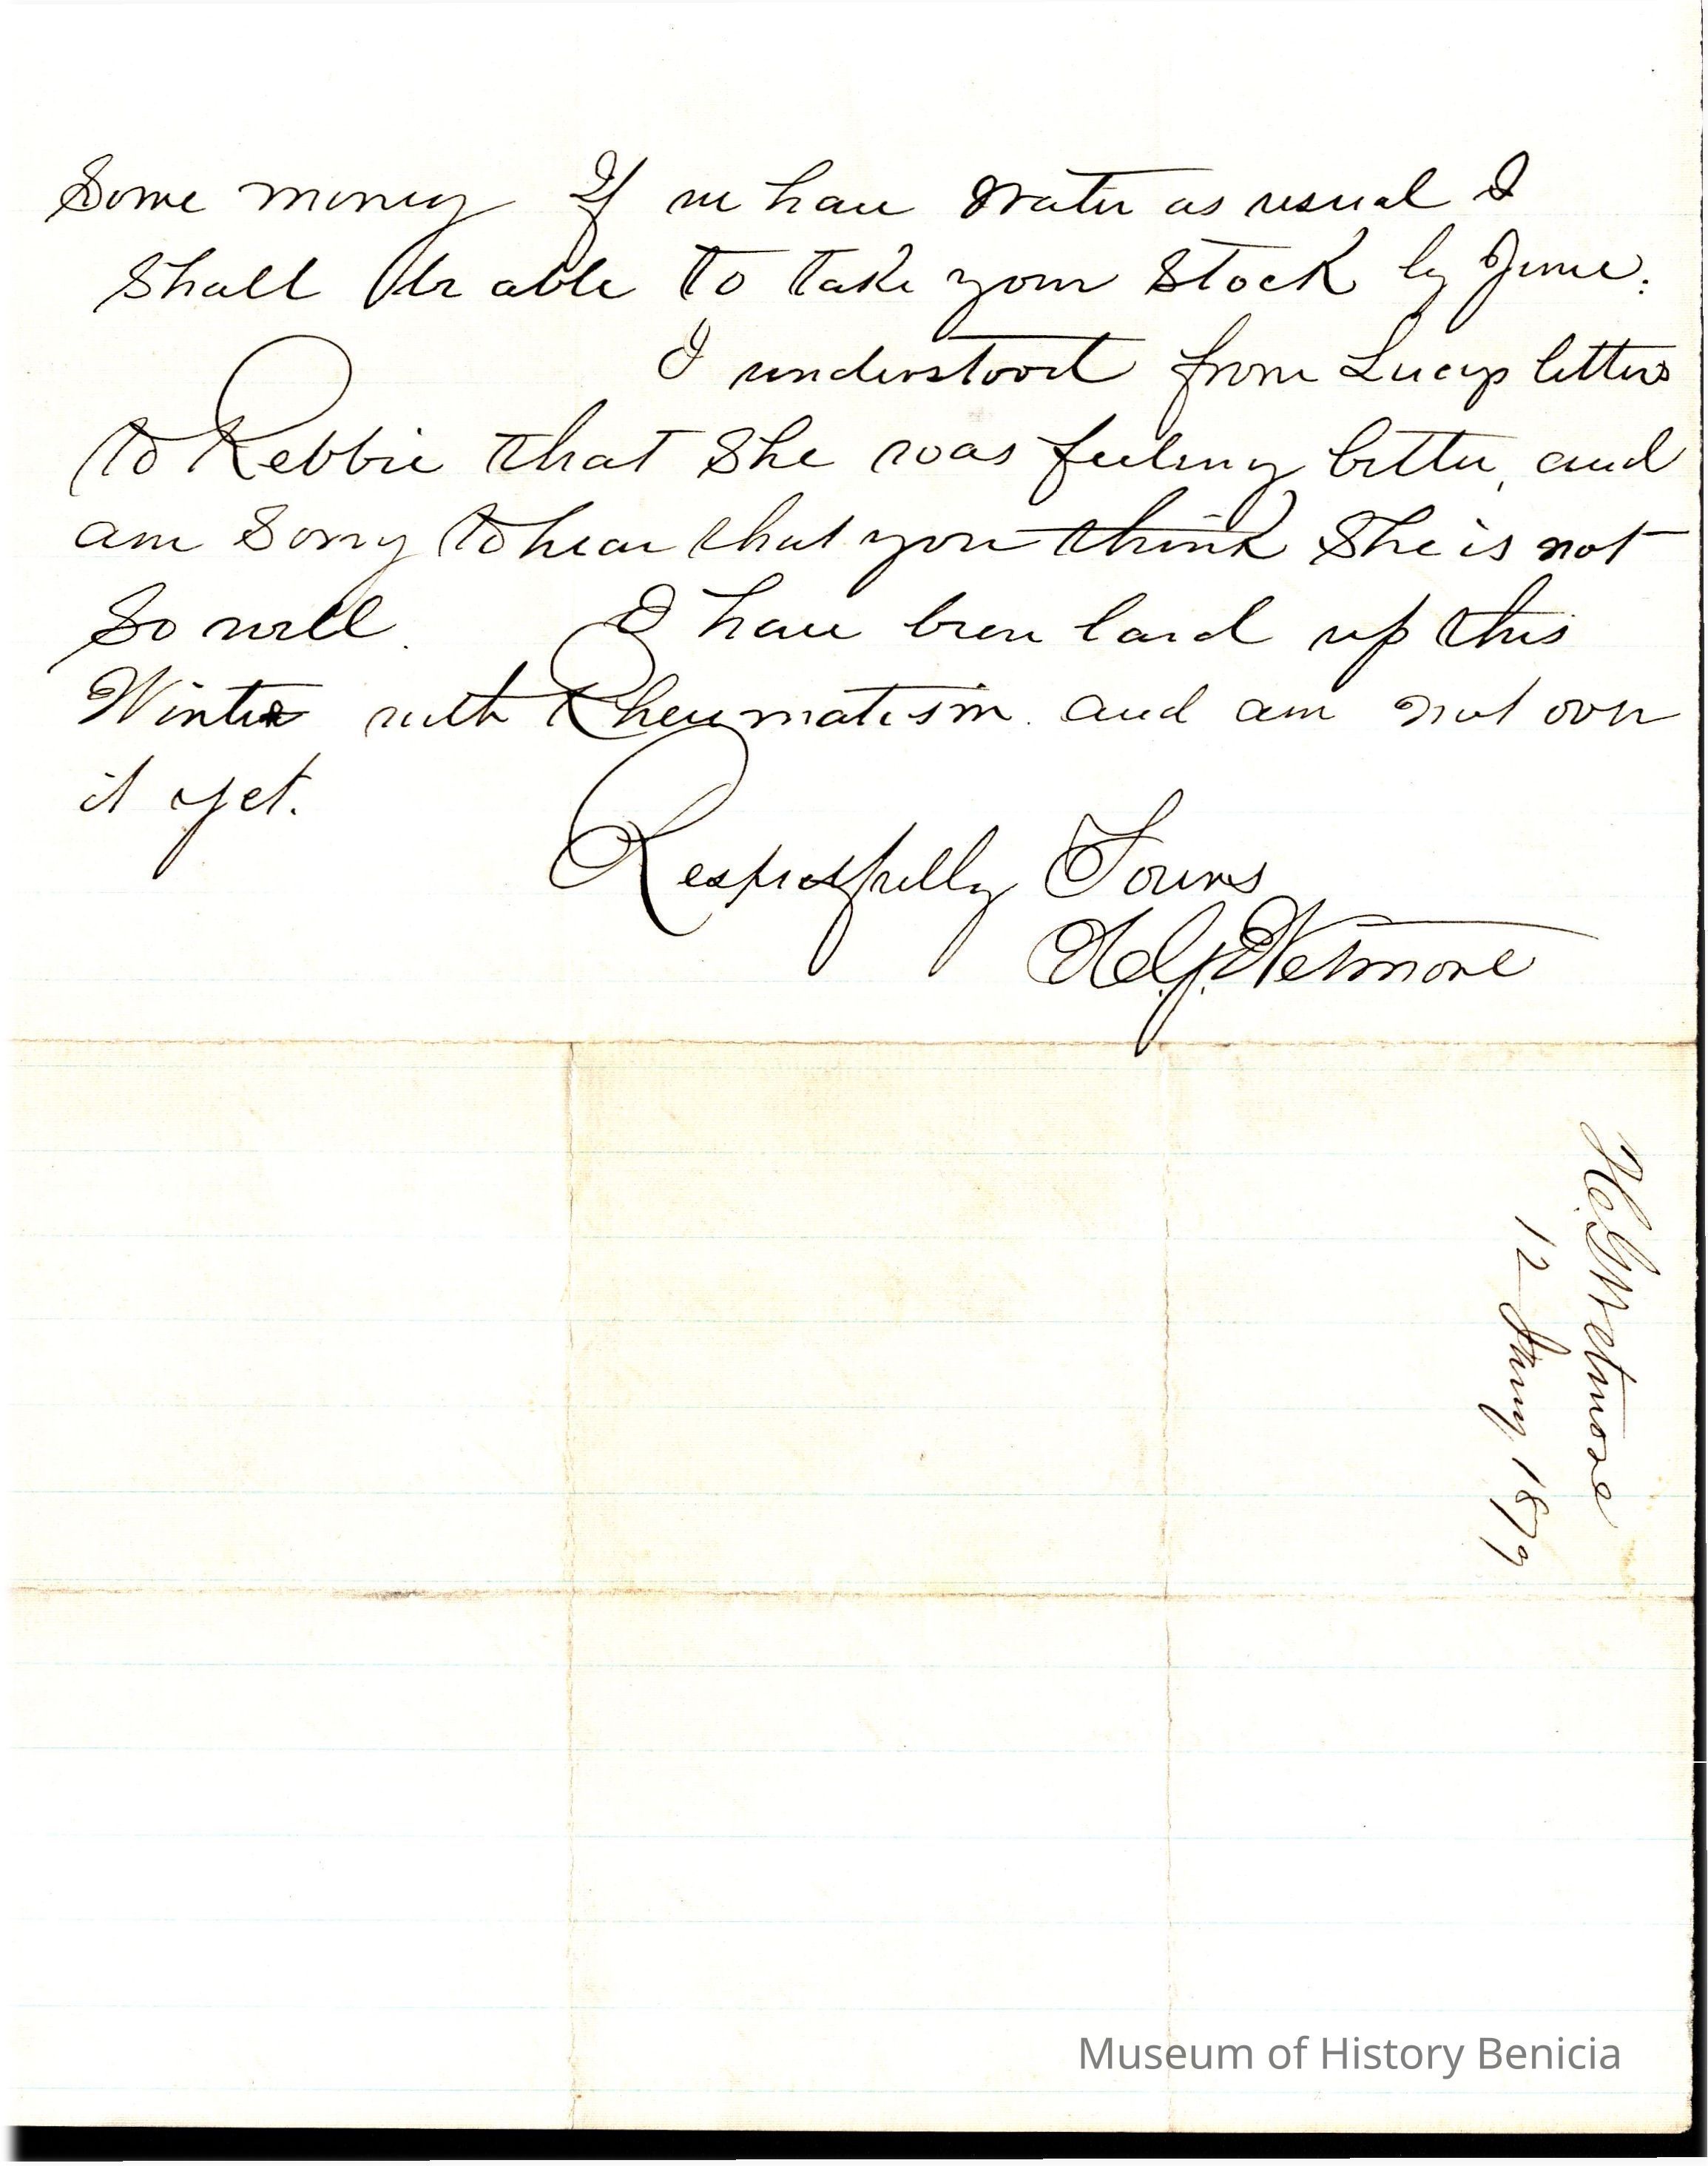 Some money If we have Water as usual I
Shall be able to take your Stock by June.
I understood from Lucys letters
to Rebbie that She was feeling better, and
am Sorry to hear that you think She is not
So well. I have been laid up this
Winter with Rheumatism. and am not over
it yet.
Respectfully Yours
H.G. Wetmore
H.G. Wetmore
12 Jany 1879
Museum of History Benicia